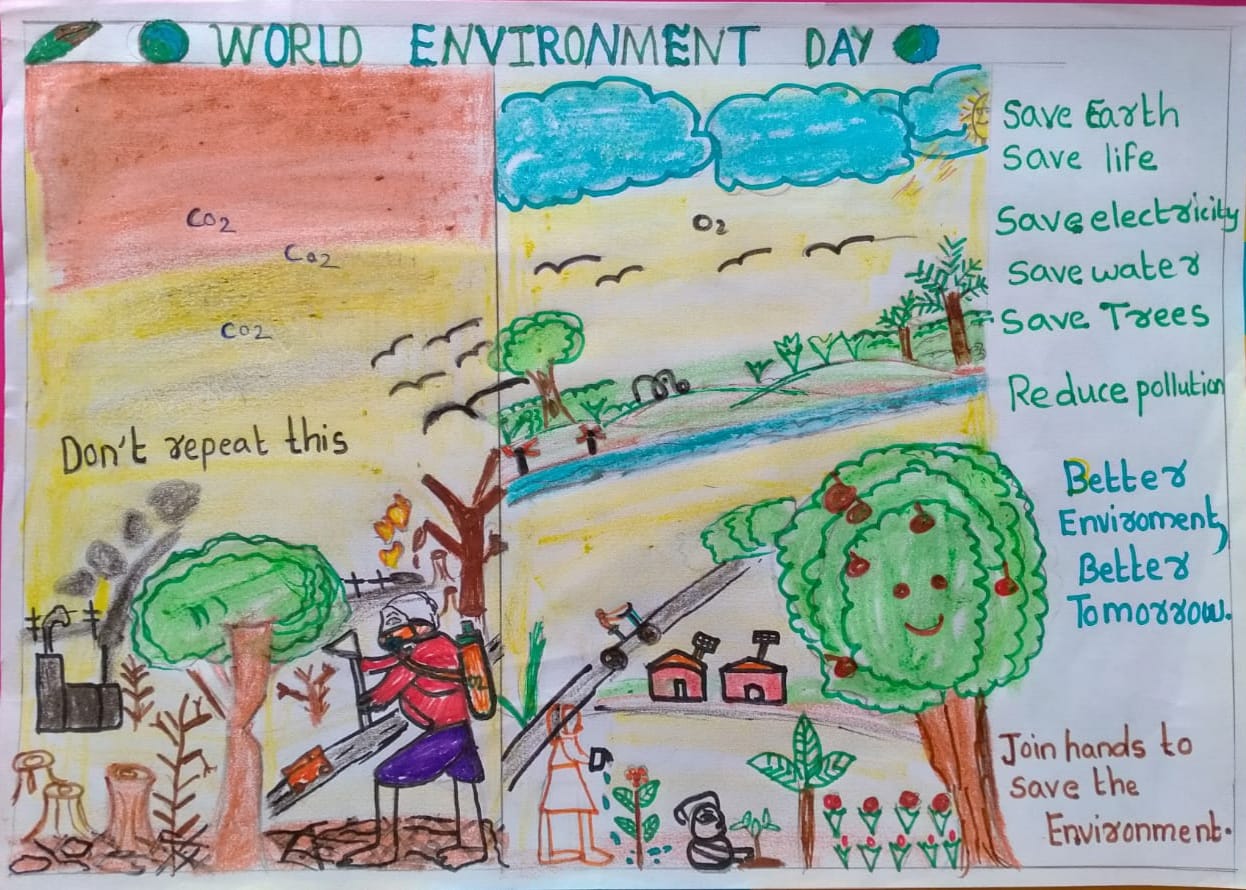 WORLD ENVIRONMENT DAY
CO2
CO2
CO2
Don't repeat this
O2
Save Earth
Save life
Save electricity
Save water
Save Trees
Reduce pollution
Better
Enviroment,
Better
Tomorrow.
Join hands to
save the
Environment.